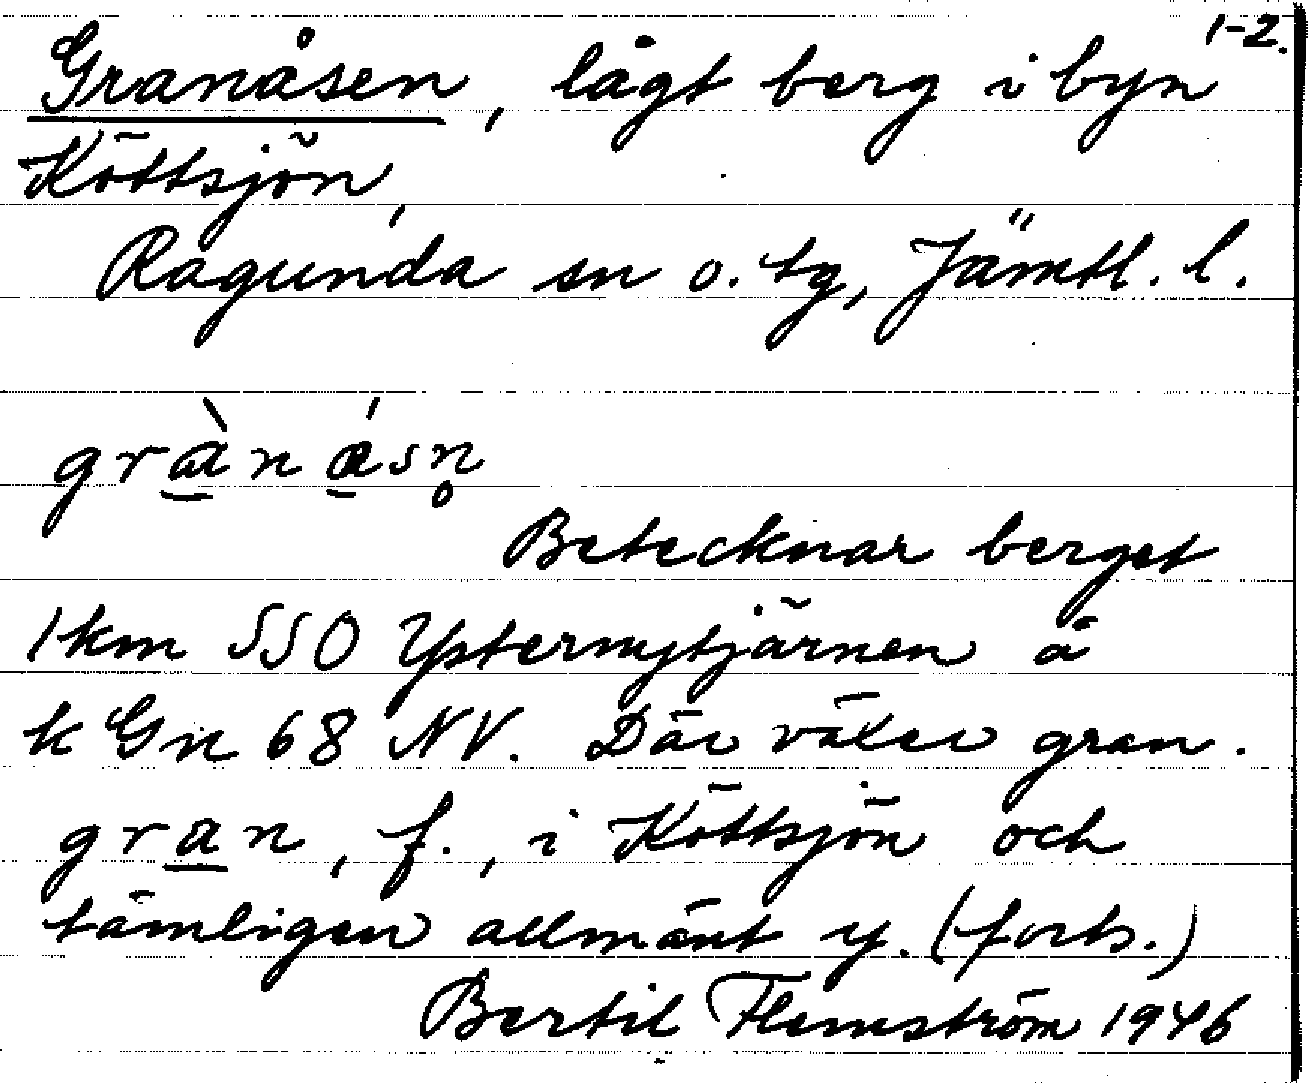 1-2.
Granåsen, lågt berg i byn
Köttsjön,
Ragunda sn o. tg, Jämtl. l.
grànásn̥
Betecknar berget
1 km SSO Ysternytjärnen å
k Gn 68 NV. Där växer gran.
gran, f., i Köttsjön och
tämligen allmänt y. (forts.)
Bertil Flemström 1946